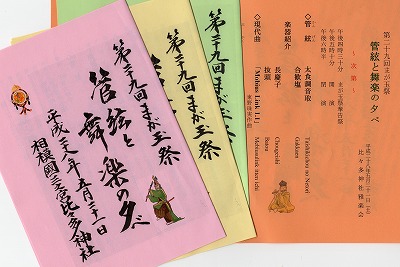 第三十九回まが玉祭
管絃と
舞楽の夕べ
平成二十八年五月二十一日
相模國三之宮比々多神社
第三十九回まが玉祭
第三十九回まが玉祭
第三十九回まが玉祭
管絃と舞楽の夕べ
平成二十八年五月二十一日(土)
比々多神社雅楽会
～次第～
午後四時三十分 まが玉祭奉告祭
午後五時十分 開演
午後六時半 閉演
楽器紹介
◇管絃
太食調音取 Taishikichou no Netori
合歓塩 Gakkaen
長慶子 Chougeishi
抜頭 Batou
◇現代曲
「Mobius Link 1.1」 Mebiusulink itten ichi
東野珠実作曲